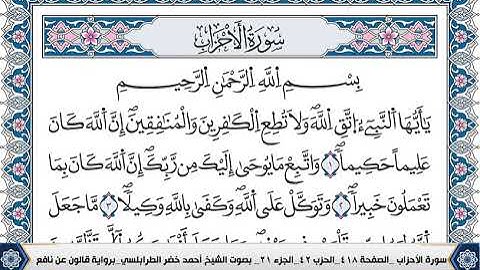 سُورَةُ الْأَحْزَابِ
بِسْمِ اللَّهِ الرَّحْمَٰنِ الرَّحِيمِ
يَٰأَيُّهَا اَ۬لنَّبِيٓءُ اِ۪تَّقِ اِ۬للَّهَ وَلَا تُطِعِ اِ۬لْكَٰفِرِينَ وَالْمُنَٰفِقِينَ إِنَّ اَ۬للَّهَ كَانَ
عَلِيماً حَكِيماً ١ وَاتَّبِعْ مَا يُوحَىٰ إِلَيْكَ مِن رَّبِّكَ إِنَّ اَ۬للَّهَ كَانَ بِمَا
تَعْمَلُونَ خَبِيراً ٢ وَتَوَكَّلْ عَلَى اَ۬للَّهِ وَكَفَىٰ بِاللَّهِ وَكِيلاً ٣ مَّا جَعَلَ
سورة الأحزاب _الصفحة ٤١٨_ الحزب ٤٢_ الجزء ٢١ _ بصوت الشيخ أحمد خضر الطرابلسي_برواية قالون عن نافع